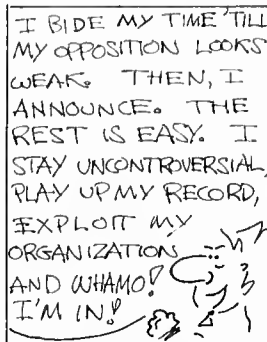 I BIDE MY TIME 'TILL
MY OPPOSITION LOOKS
WEAK. THEN, I
ANNOUNCE. THE
REST IS EASY. I
STAY UNCONTROVERSIAL,
PLAY UP MY RECORD,
EXPLOIT MY
ORGANIZATION
AND WHAMO!
I'M IN!